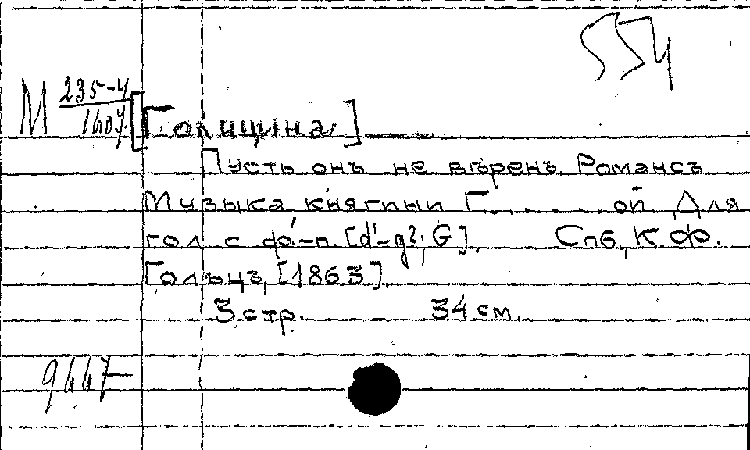 554
М 235-4/1607. [Голицина]
Пусть онъ не вѣренъ. Романсъ
Музыка княгини Г........ой. Для
гол. с ф-п. [d'-g²; G]. Спб., К. Ф.
Гольцъ, [1863].
3 стр. 34 см.
9447